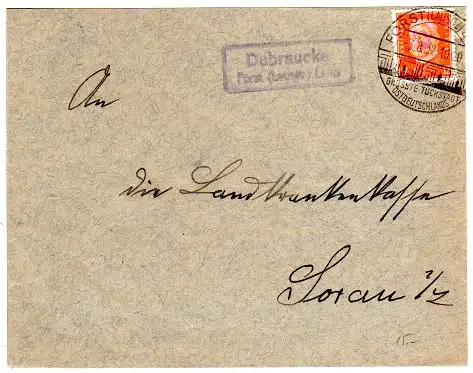 Dubraucke
Forst (Lausitz) Land
FORST (LAUSITZ)
GRÖSSTE TUCHSTADT
OSTDEUTSCHLANDS
An
die Landkrankenkasse
Sorau N/L
15.-